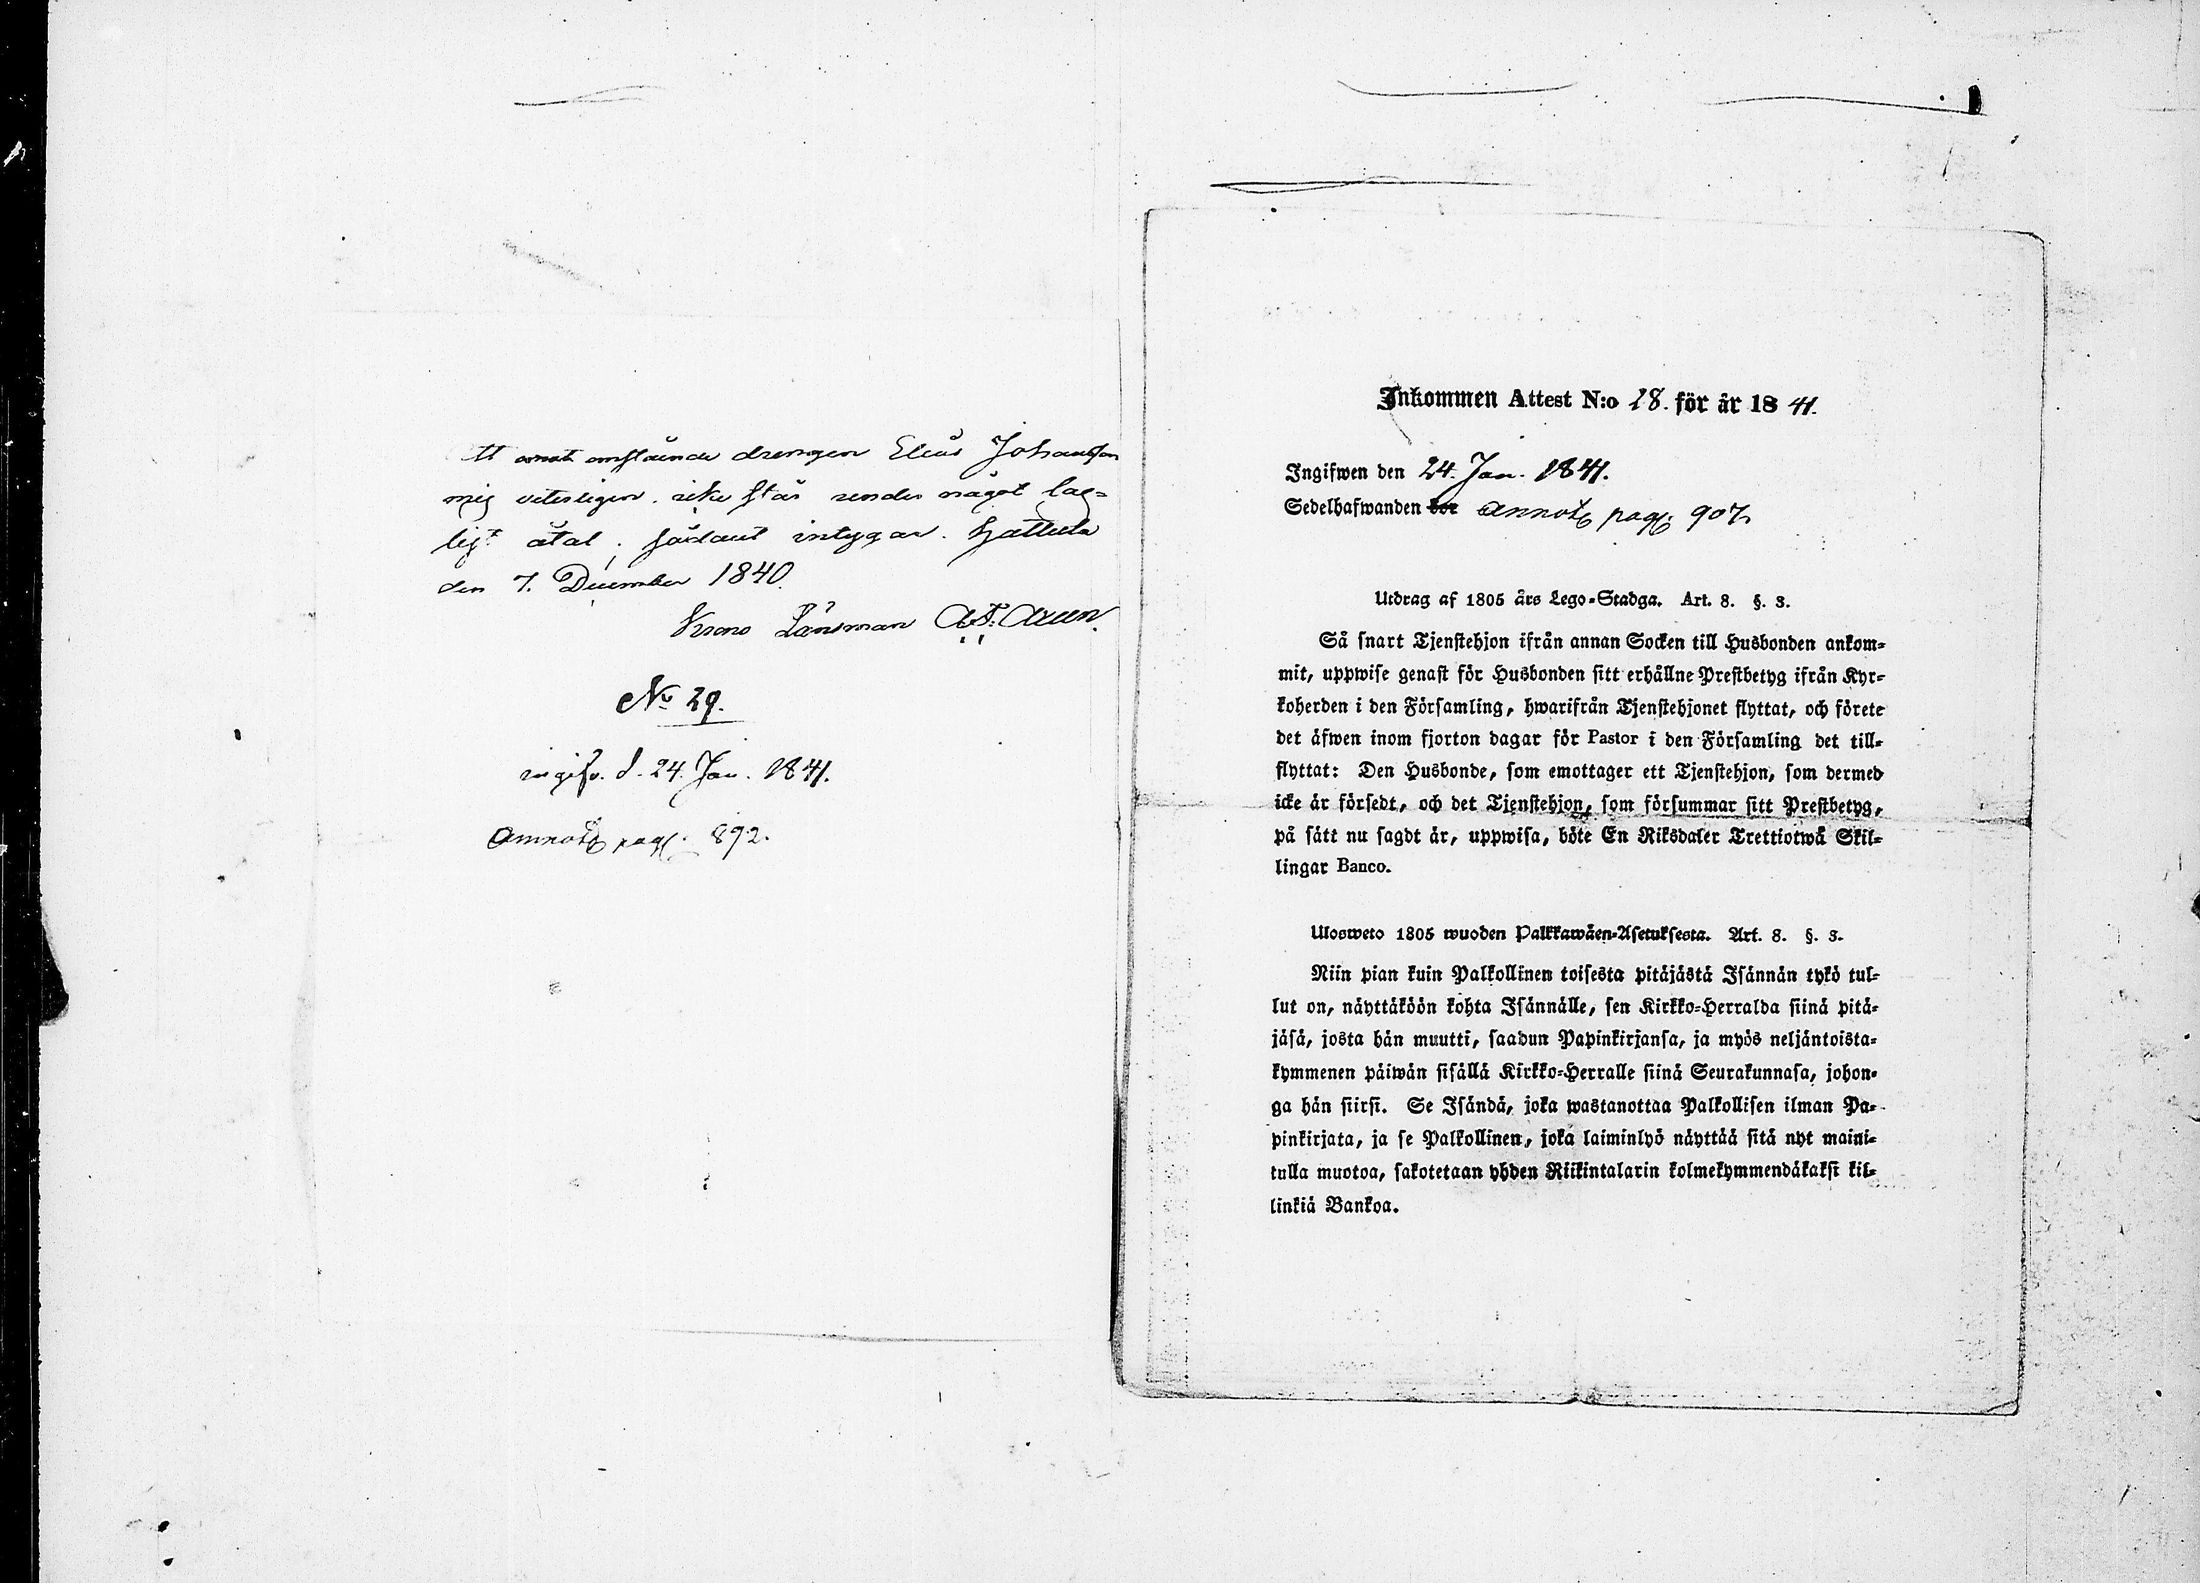 tt omstående drengen Elias Johansson
mig veterligen icke står under något lag=
ligt åtal, sådant intygar. Hattula
den 7. December 1840.
Krono Länsman
No 29.
ingifv. d. 24. Jan. 1841.
Annot. pag. 892.
Inkommen Attest N:o 28. för år 1841.
Ingifwen den 24. Jan. 1841.
Sedelhafwanden bor annot. pag. 907.
Utdrag af 1805 års Lego-Stadga. Art. 8. §. 3.
Så snart Tjenstehjon ifrån annan Socken till Husbonden ankom=
mit, uppwise genast för Husbonden sitt erhållne Prestbetyg ifrån Kyr=
koherden i den Församling, hwarifrån Tjenstehjonet flyttat, och förete
det äfwen inom fjorton dagar för Pastor i den Församling det till=
flyttat: Den Husbonde, som emottager ett Tjenstehjon, som dermed
icke är försedt, och det Tjenstehjon, som försummar sitt Prestbetyg,
på sätt nu sagdt är, uppwisa, böte En Riksdaler Trettiotwå Skil=
lingar Banco.
Ulosweto 1805 wuoden Palkkawäen-Asetuksesta. Art. 8. §. 3.
Niin pian kuin Palkollinen toisesta pitäjästä Isännän tykö tul=
lut on, näyttäköön kohta Isännälle, sen Kirkko-Herralda siinä pitä=
jäsä, josta hän muutti, saadun Papinkirjansa, ja myös neljäntoista=
kymmenen päiwän sisällä Kirkko-Herralle siinä Seurakunnasa, johon=
ga hän siirsi. Se Isändä, joka wastanottaa Palkollisen ilman Pa=
pinkirjata, ja se Palkollinen, joka laiminlyö näyttää sitä nyt maini=
tulla muotoa, sakotetaan yhden Riikintalarin kolmekymmendäkaksi kil=
linkiä Bankoa.